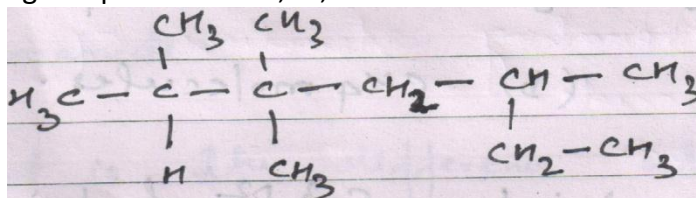 CH3 CH3
H3C - C - C - CH2 - CH - CH3
H CH3 CH2-CH3